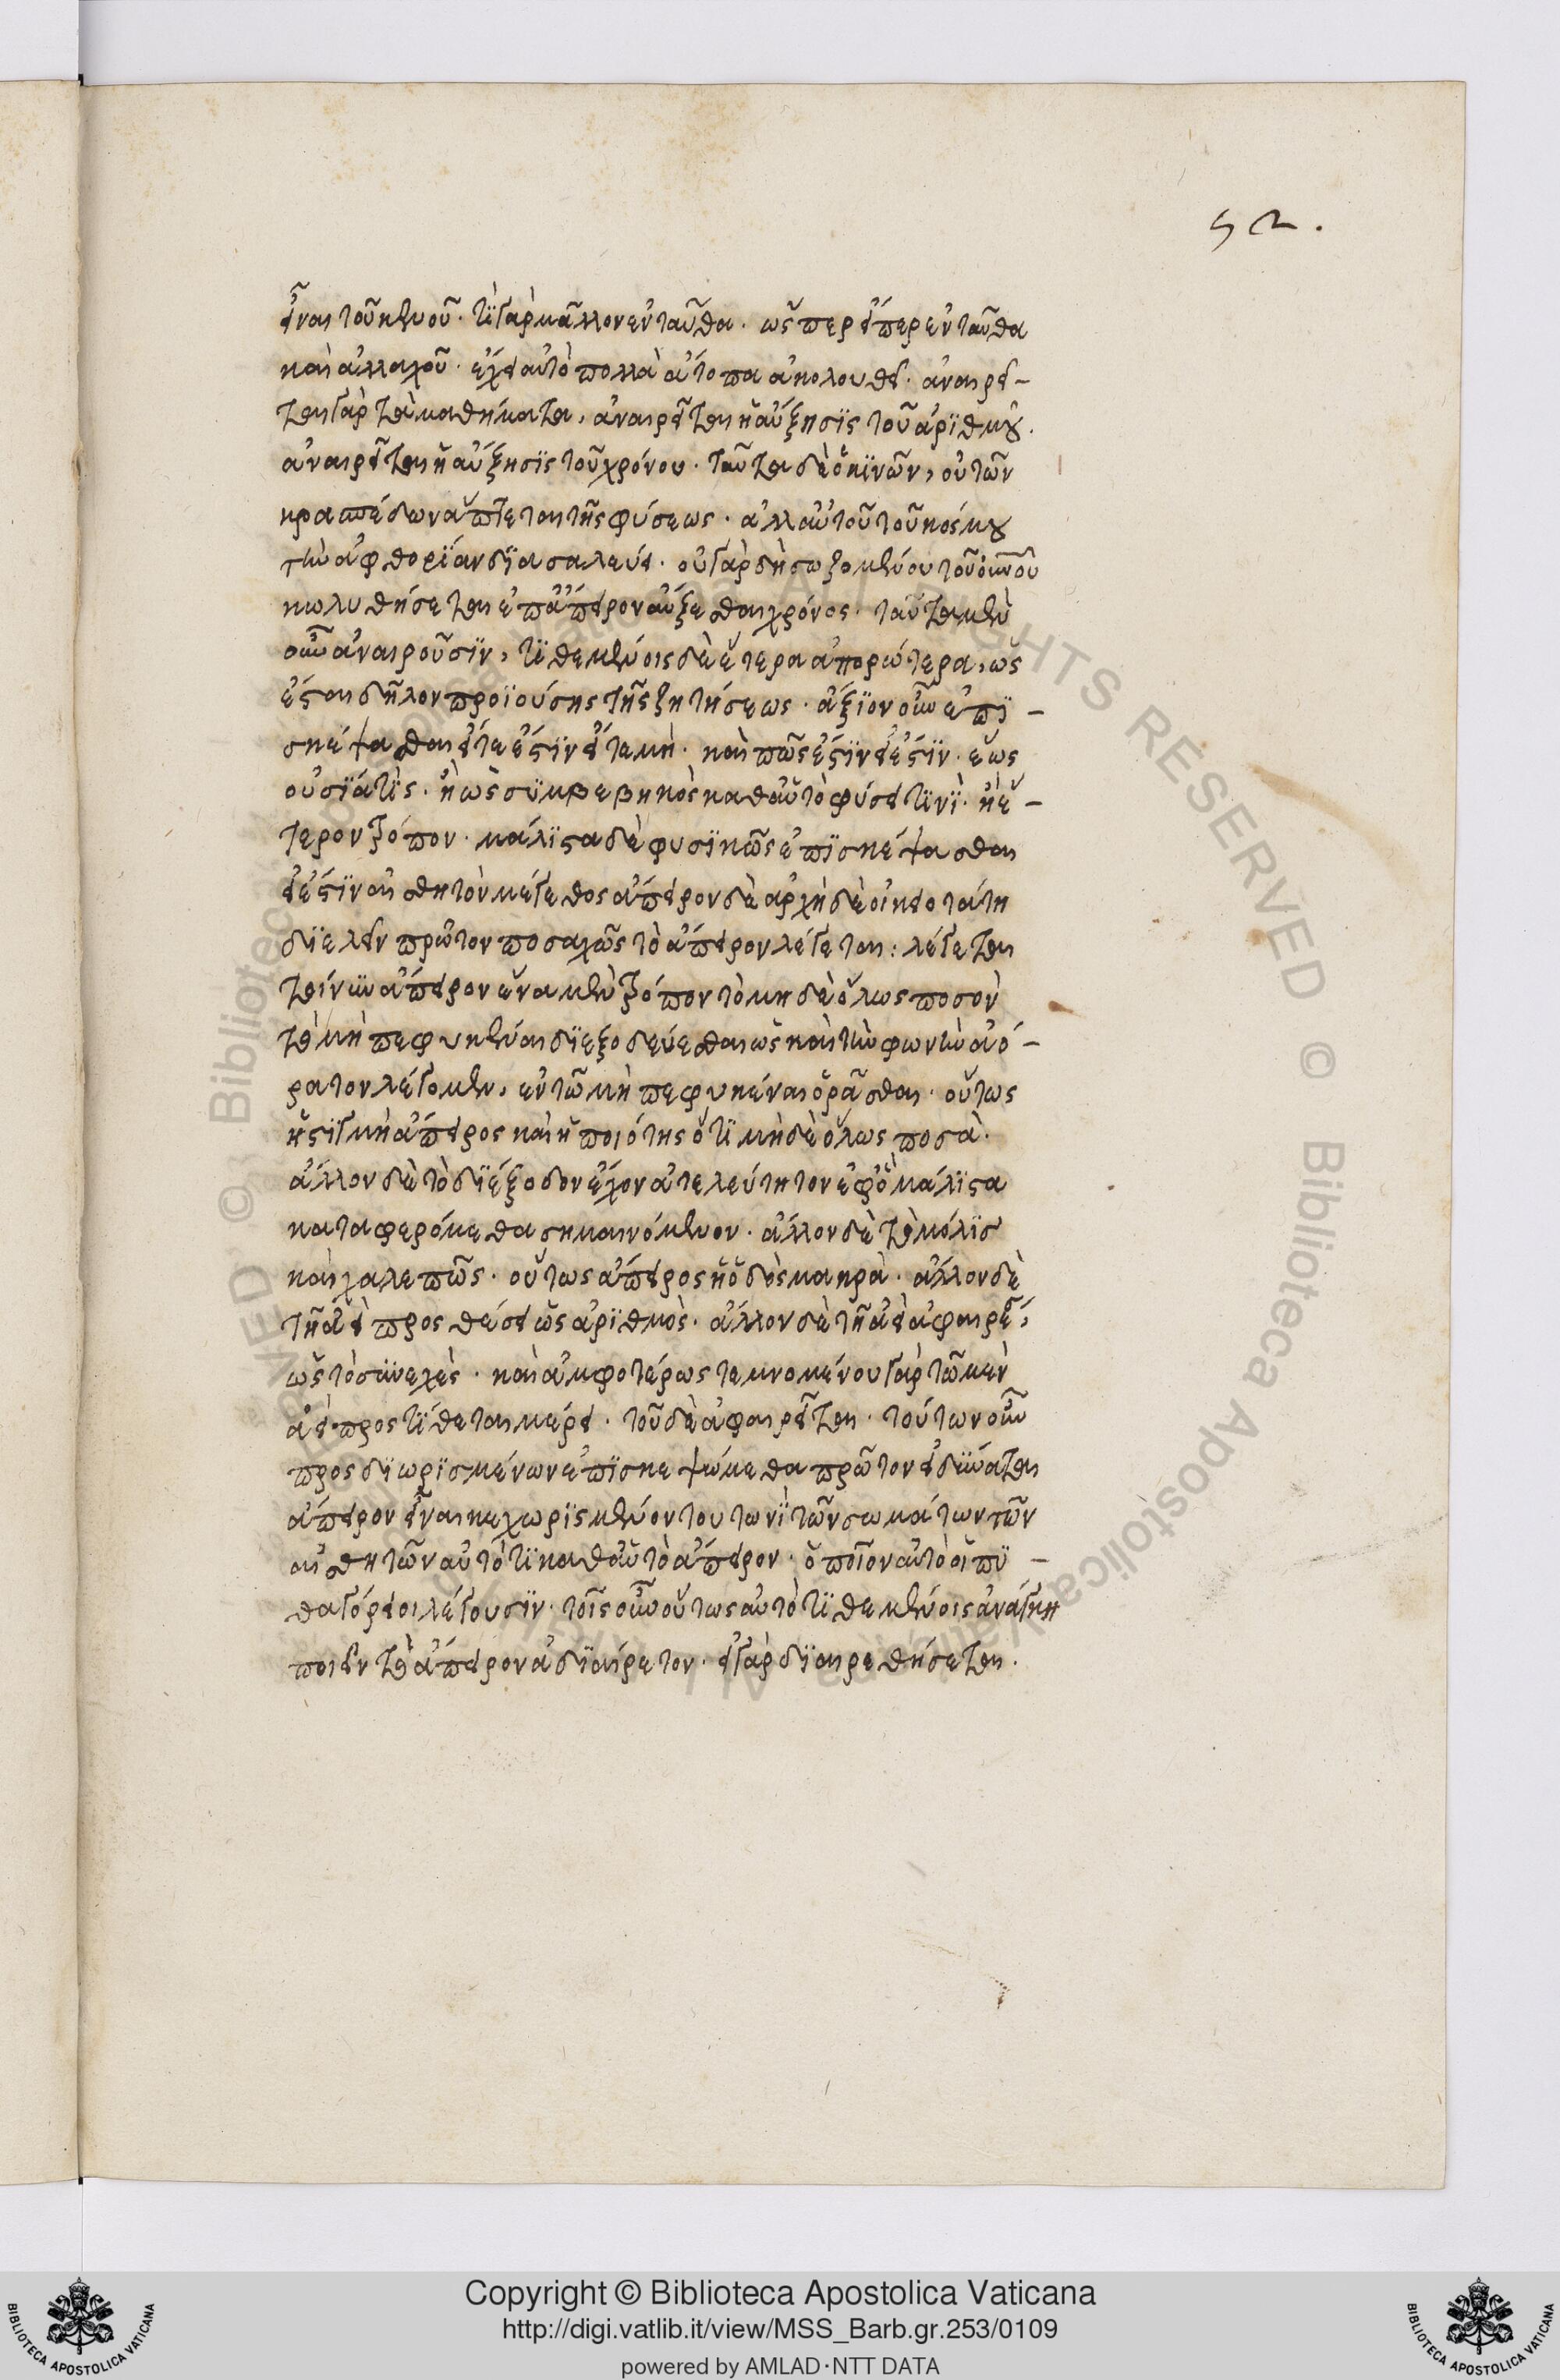 52.
εἶναι τοῦ κενοῦ· τί γὰρ μᾶλλον ἐνταῦθα· ὥσπερ εἴπερ ἐνταῦθα
καὶ ἀλλαχοῦ· ἔχει αὐτὸ πολλὰ ἄτοπα ἀκολουθεῖ· ἀναιρεῖ-
ται γὰρ τὰ μαθήματα, ἀναιρεῖται ἡ αὔξησις τοῦ ἀριθμοῦ·
ἀναιρεῖται ἡ αὔξησις τοῦ χρόνου· ταῦτα δὲ ὁ κινῶν, οὐ τῶν
κρασπέδων ἅπτεται τῆς φύσεως· ἀλλ' αὐτοῦ τοῦ κόσμου
τὴν ἀφθορίαν διασαλεύει· οὐ γὰρ δὴ σωζομένου τοῦ οὐνοῦ
κωλυθήσεται ἐπ' ἄπειρον αὔξεσθαι χρόνος· ταῦτα μὲν
οὖν ἀναιροῦσιν, τιθεμένοις δὲ ἕτερα ἀπορώτερα, ὡς
ἔσται δῆλον προϊούσης τῆς ζητήσεως· ἄξιον οὖν ἐπι-
σκέψασθαι εἴτε ἔστιν εἴτε μή· καὶ πῶς ἔστιν εἰ ἔστιν· ἕως
οὐσία τίς· ἢ ὡς συμβεβηκὸς καθ' αὑτὸ φύσει τινί· ἢ ἕ-
τερον τρόπον· μάλιστα δὲ φυσικῶς ἐπισκέψασθαι
εἰ ἔστιν αἰσθητὸν μέγεθος ἄπειρον δὲ ἀρχὴ δὲ οἰκειοτάτη
διελεῖν πρῶτον ποσαχῶς τὸ ἄπειρον λέγεται: λέγεται
τοίνυν ἄπειρον ἕνα μὲν τρόπον τὸ μηδὲ ὅλως ποσὸν
τὸ μὴ πεφυκέναι διεξοδεύεσθαι ὡς καὶ τὴν φωνὴν ἀό-
ρατον λέγομεν, ἐν τῶ μὴ πεφυκέναι ὁρᾶσθαι· οὕτως
ἡ στιγμὴ ἄπειρος καὶ ἡ ποιότης ὅτι μηδὲ ὅλως ποσά·
ἄλλον δὲ τὸ διέξοδον ἔχον ἀτελεύτητον ἐφ' ὃ μάλιστα
καταφερόμεθα σημαινόμενον· ἄλλον δὲ τὸ μόλις
καὶ χαλεπῶς· οὕτως ἄπειρος ἡ ὁδὸς μακρά· ἄλλον δὲ
τῆ ἀεὶ προσθέσει ὡς ἀριθμός· ἄλλον δὲ τῆ ἀεὶ ἀφαιρέ,
ὡς τὸ συνεχές· καὶ ἀμφοτέρως τεμνομένου γὰρ τῶ μὲν
ἀεὶ προστίθεται μέρει· τοῦ δὲ ἀφαιρεῖται· τούτων οὖν
προσδιωρισμένων ἐπισκεψώμεθα πρῶτον εἰ δύναται
ἄπειρον εἶναι κεχωρισμένον τουτωνὶ τῶν σωμάτων τῶν
αἰσθητῶν αὐτό τι καθ' αὑτὸ ἄπειρον· ὁποῖον αὐτὸ οἱ πυ-
θαγόρειοι λέγουσιν· τοῖς οὖν οὕτως αὐτὸ τιθεμένοις ἀνάγκη
ποιεῖν τὸ ἄπειρον ἀδιαίρετον· εἰ γὰρ διαιρεθήσεται·
Copyright © Biblioteca Apostolica Vaticana
http://digi.vatlib.it/view/MSS_Barb.gr.253/0109
powered by AMLAD·NTT DATA